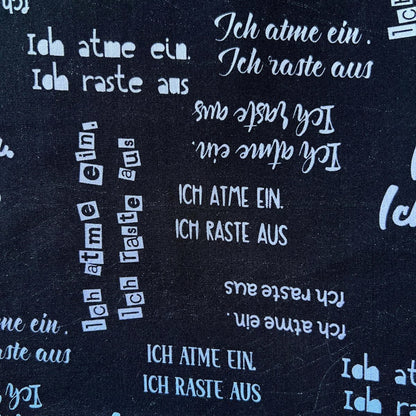 ich
Ich
Ich atme ein.
Ich raste aus
Ich atme ein.
Ich raste aus
Ich atme ein.
Ich raste aus
Ich atme ein.
Ich raste aus
ICH ATME EIN.
ICH RASTE AUS
Ich
Ich atme ein.
Ich raste aus
me ein.
aste aus
ICH ATME EIN.
ICH RASTE AUS
Ich at
Ich ras
Ich